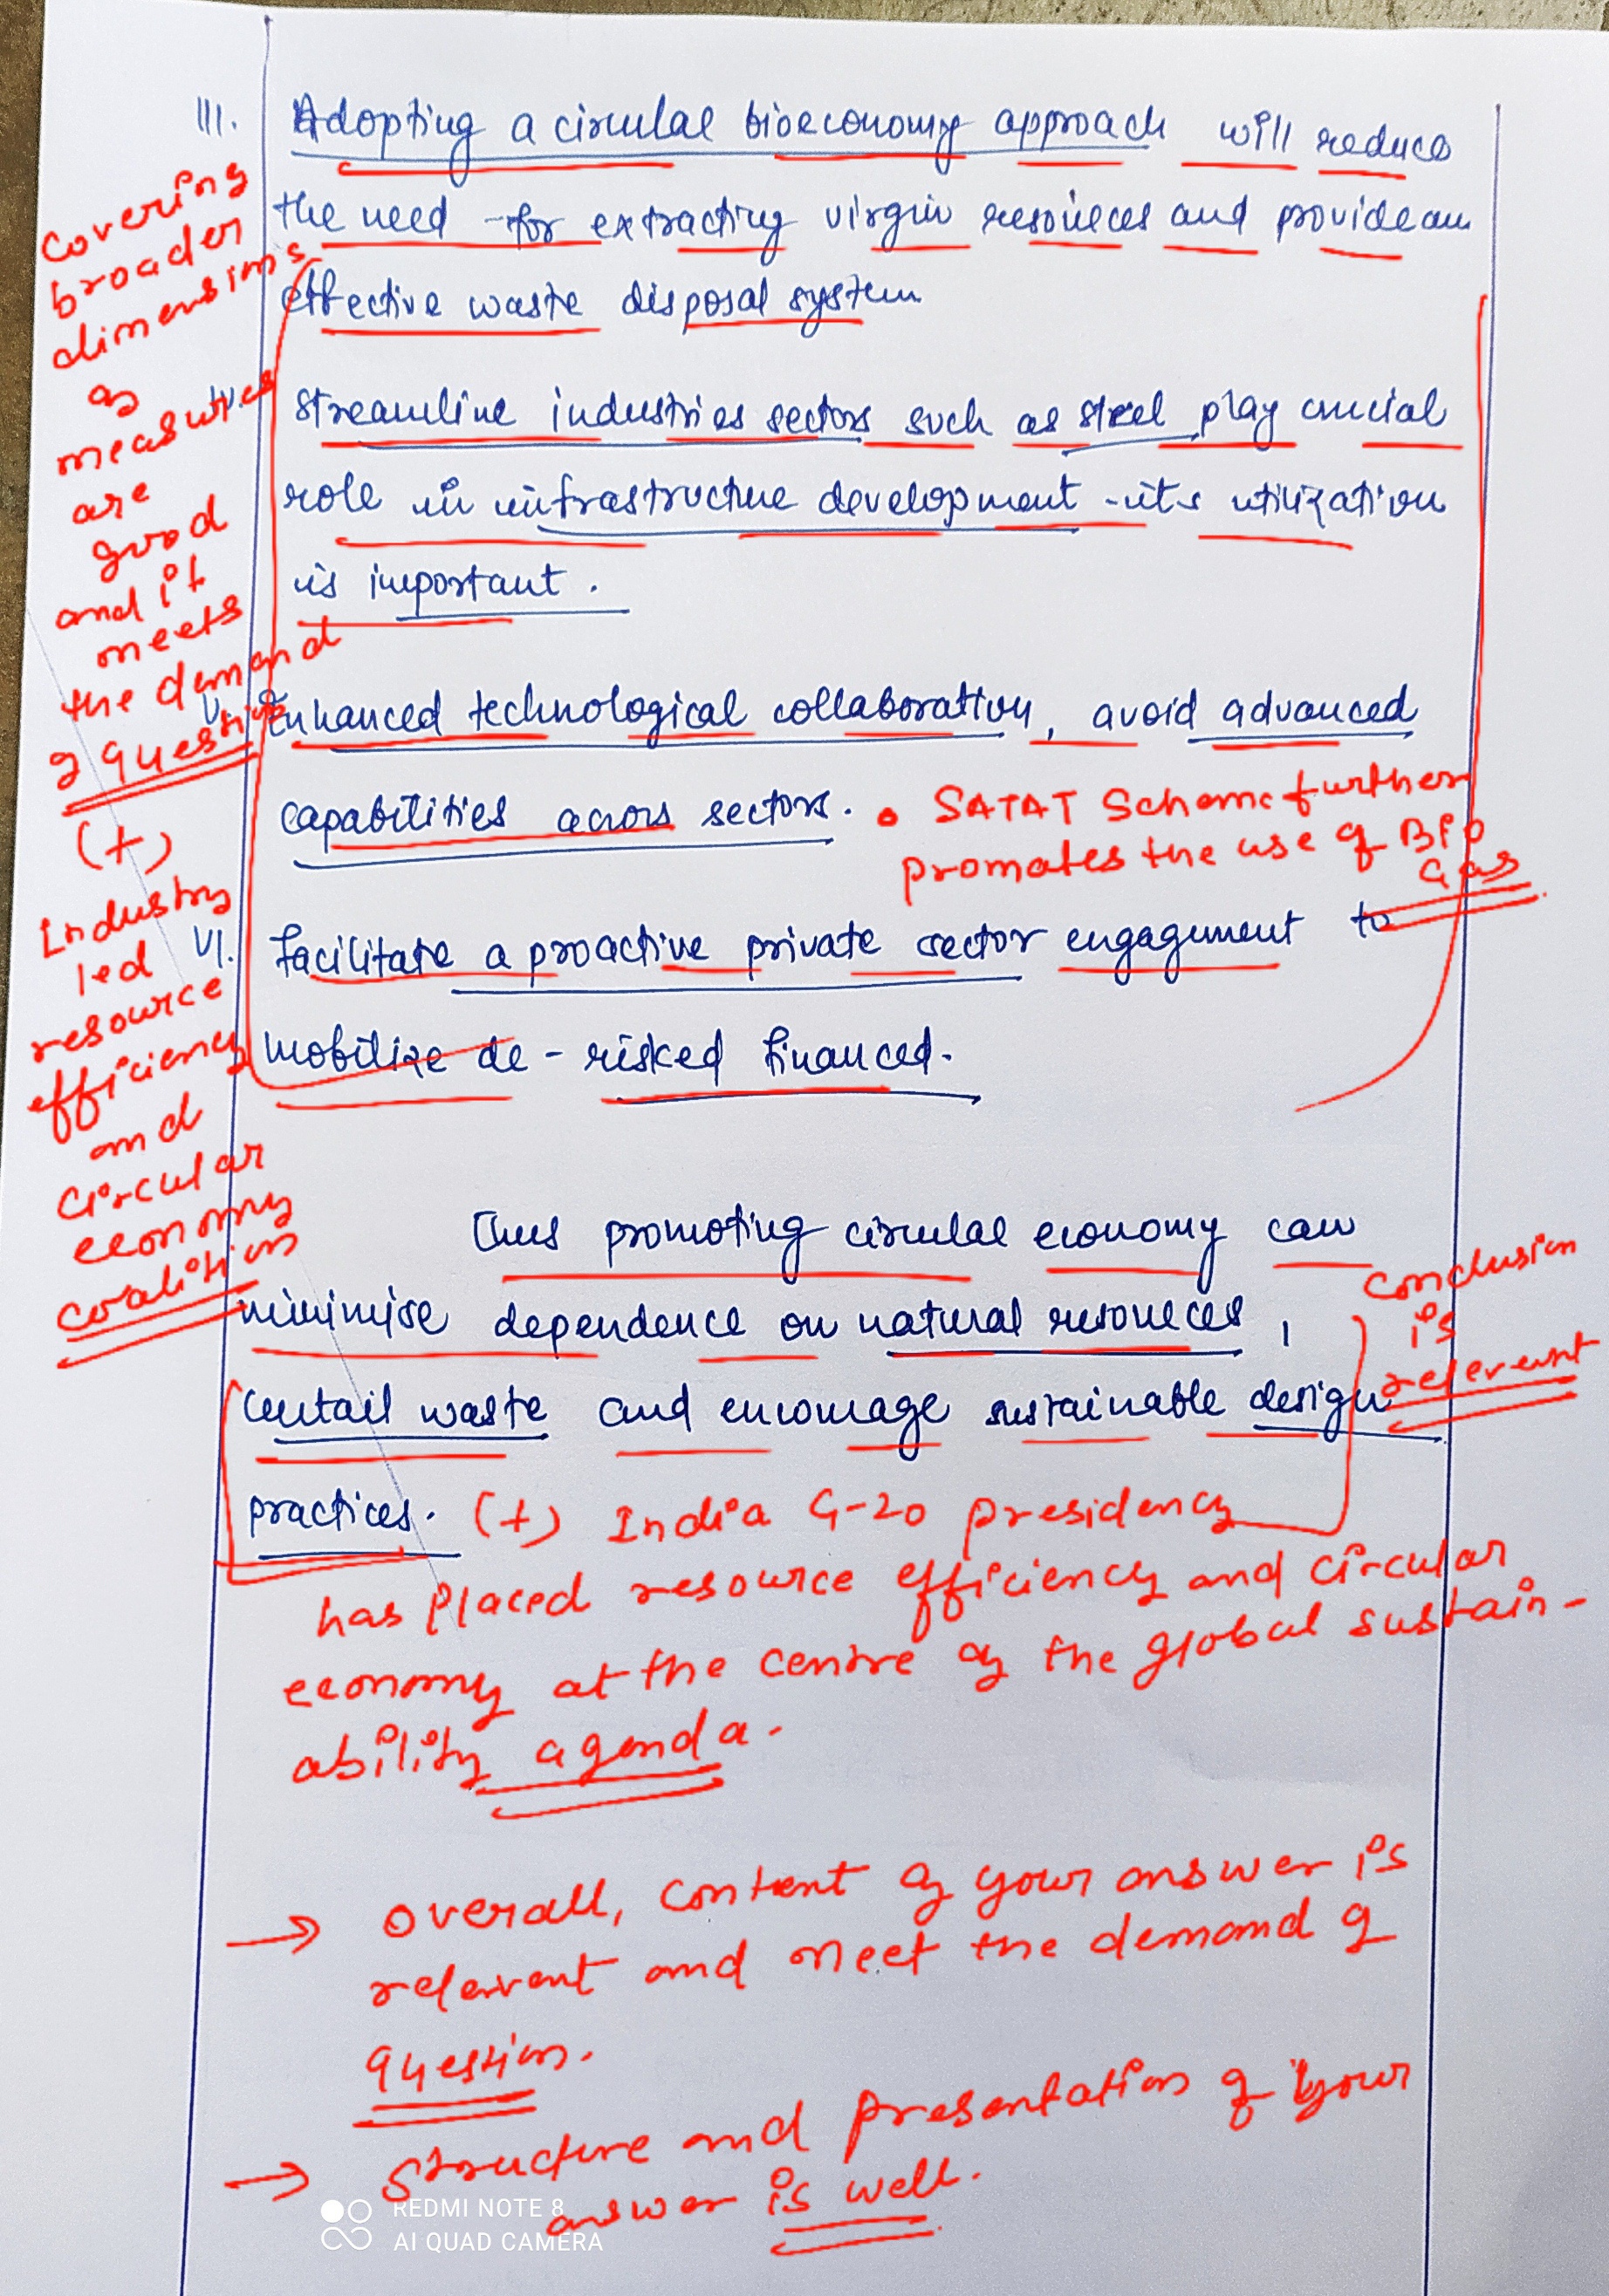 III. Adopting a circular bioeconomy approach will reduce
the need for extracting virgin resources and provide an
effective waste disposal system
IV. Streamline industries sectors such as steel play crucial
role in infrastructure development its utilization
is important.
V. Enhanced technological collaboration, avoid advanced
capabilities across sectors.
• SATAT Scheme further
promates the use of Bio
Gas
VI. Facilitate a proactive private sector engagement to
mobilize de-risked financed.
Thus promoting circular economy can
minimise dependence on natural resources,
curtail waste and encourage sustainable design
practices.
(+) India G-20 presidency
has placed resource efficiency and circular
economy at the centre of the global sustain-
ability agenda.
covering
broader
dimensions
of
measures
are
good
and it
meets
the demand
of question
(+)
Industry
led
resource
efficiency
and
circular
economy
coalition
conclusion
is
relevant
→ overall, content of your answer is
relevant and meet the demand of
question.
→ structure and presentation of your
answer is well.
REDMI NOTE 8
AI QUAD CAMERA